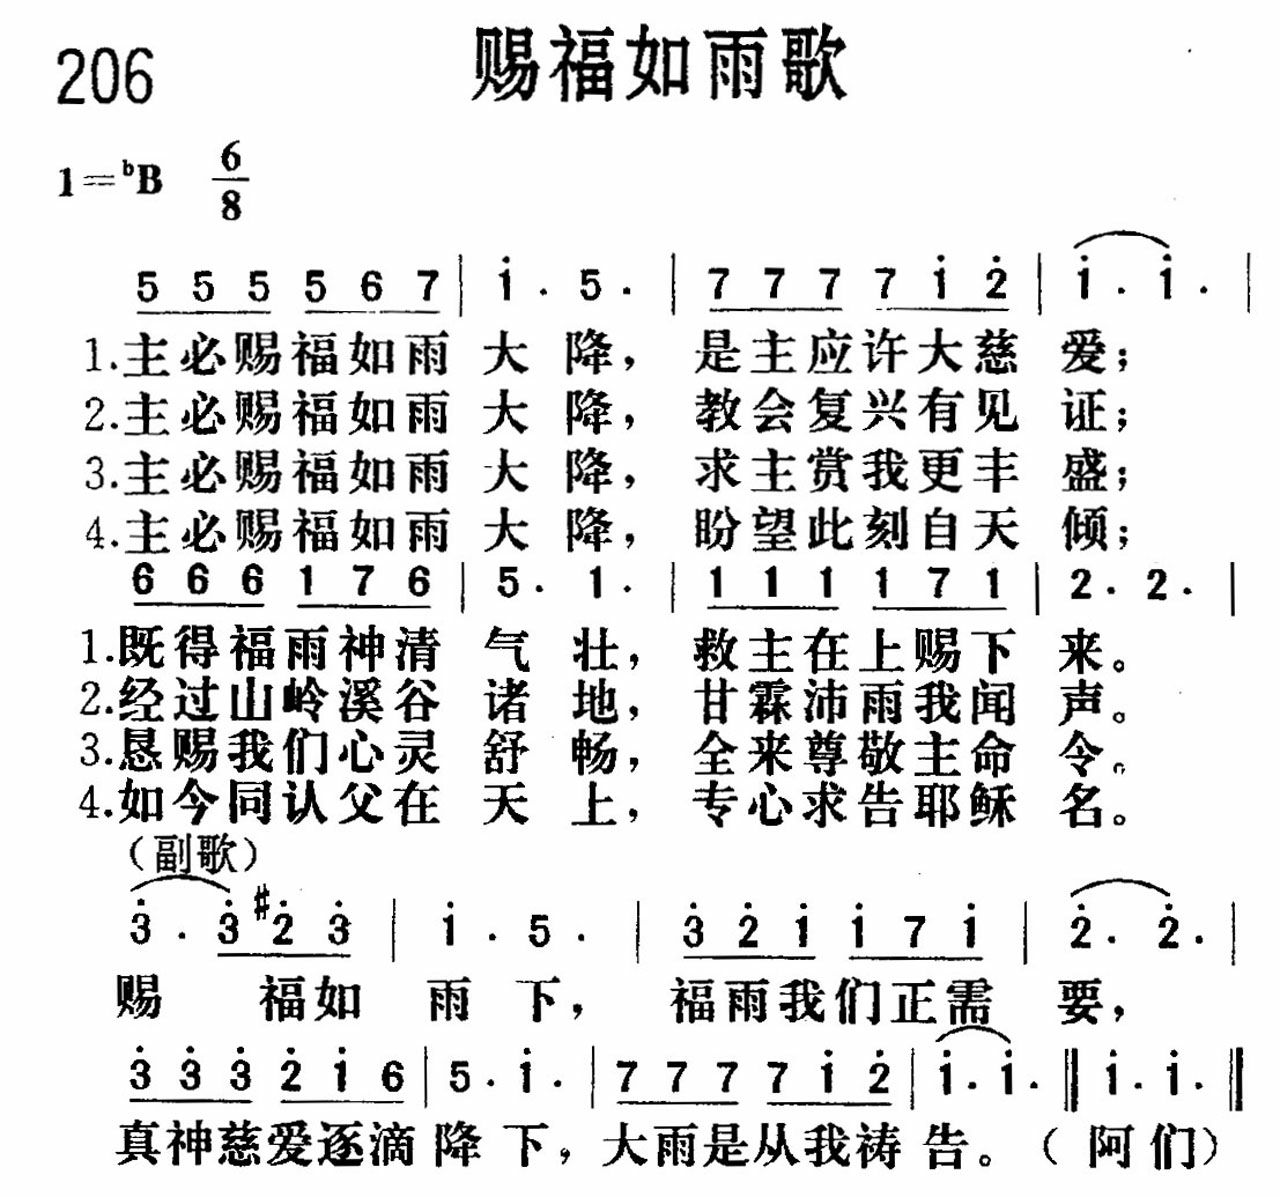 206
赐福如雨歌
1=ᵇB 6/8
5 5 5 5 6 7 | i̇ · 5 · | 7 7 7 7 i̇ 2̇ | i̇ · i̇ · |
1.主必赐福如雨大降，是主应许大慈爱；
2.主必赐福如雨大降，教会复兴有见证；
3.主必赐福如雨大降，求主赏我更丰盛；
4.主必赐福如雨大降，盼望此刻自天倾；
6 6 6 1 7 6 | 5 · 1 · | 1 1 1 1 7 1 | 2 · 2 · |
1.既得福雨神清气壮，救主在上赐下来。
2.经过山岭溪谷诸地，甘霖沛雨我闻声。
3.恳赐我们心灵舒畅，全来尊敬主命令。
4.如今同认父在天上，专心求告耶稣名。
（副歌）
3̇ · 3̇ #2̇ 3̇ | i̇ · 5 · | 3̇ 2̇ i̇ i̇ 7 i̇ | 2̇ · 2̇ · |
赐福如雨下，福雨我们正需要，
3̇ 3̇ 3̇ 2̇ i̇ 6 | 5 · i̇ · | 7 7 7 7 i̇ 2̇ | i̇ · i̇ · ‖ i̇ · i̇ · ‖
真神慈爱逐滴降下，大雨是从我祷告。（阿们）